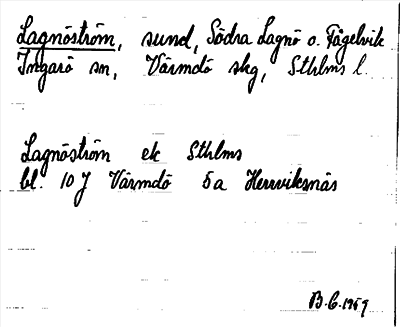 Lagnöström, sund, Södra Lagnö o. Fågelvik
Ingarö sn, Värmdö skg, Sthlms l.
Lagnöström ek Sthlms
bl. 10 J Värmdö 5a Herrviksnäs
B.G. 1959